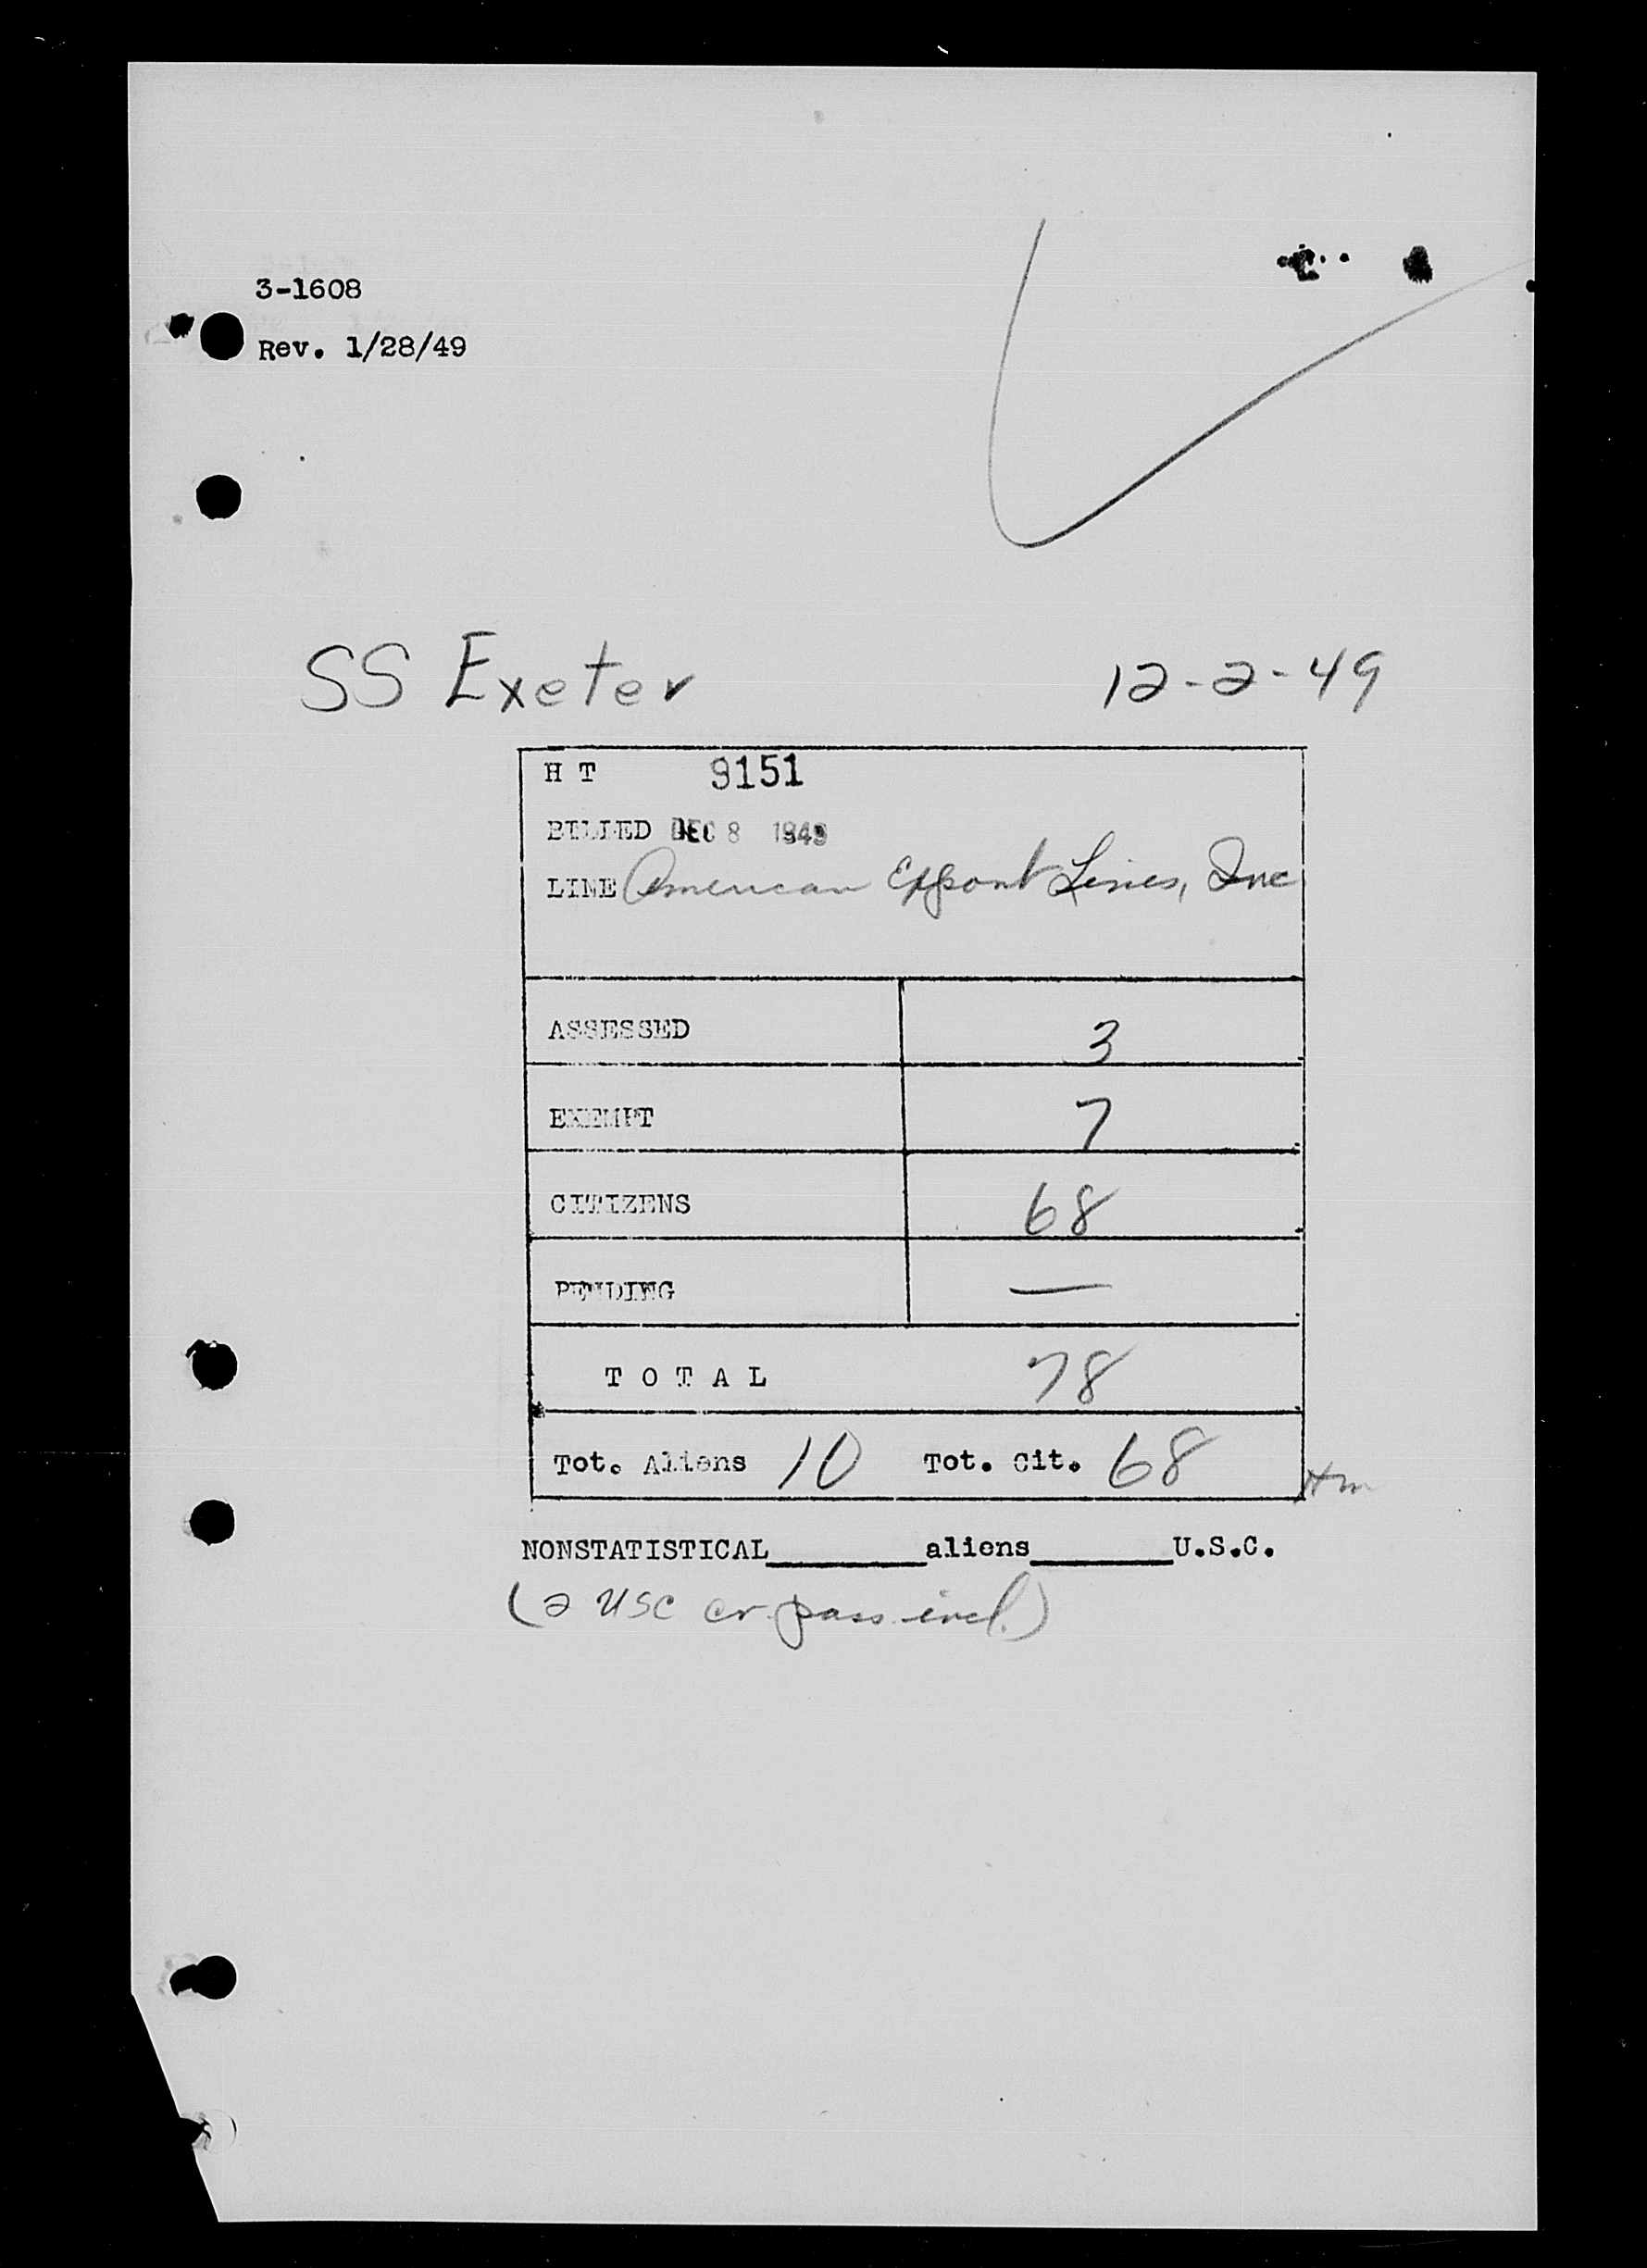 3-1608
Rev. 1/28/49
SS Exeter 12-2-49
H T 9151
BILLED DEC 8 1949
LINE American Export Lines, Inc
ASSESSED 3
EXEMPT 7
CITIZENS 68
PENDING —
T O T A L 78
Tot. Aliens 10 Tot. Cit. 68
Hm
NONSTATISTICAL________aliens________U.S.C.
(2 USC cr. pass. incl.)